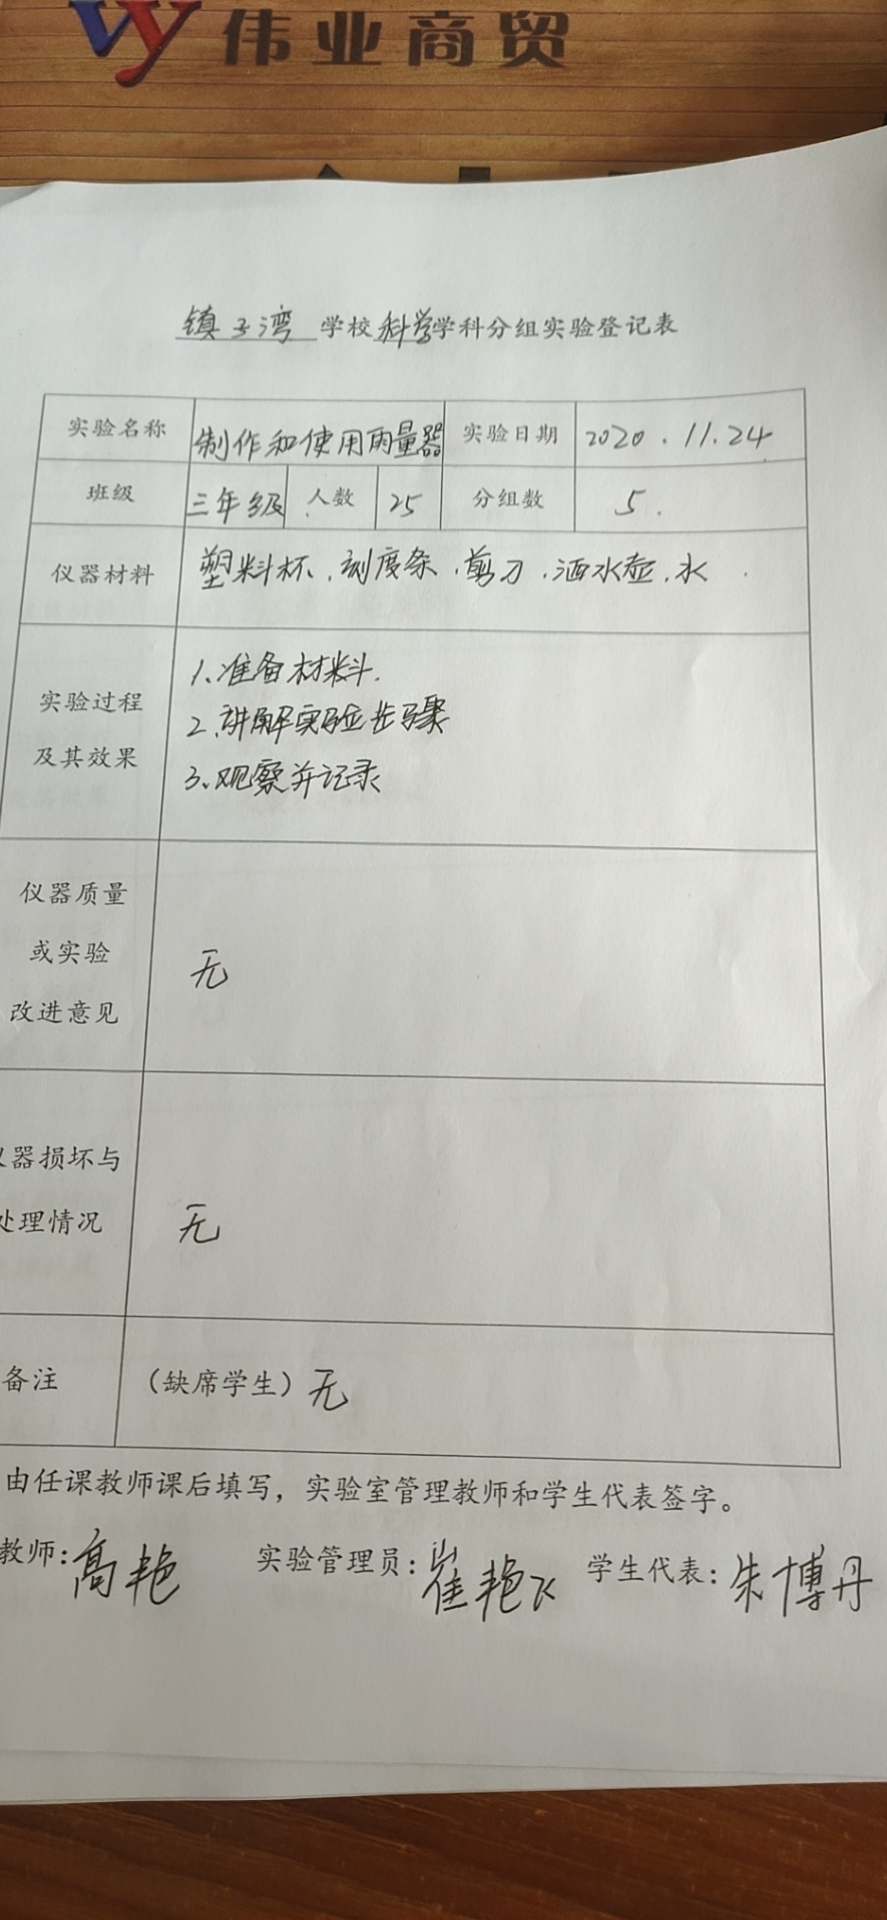 伟业商贸
镇子湾 学校 科学学科分组实验登记表
实验名称 制作和使用雨量器 实验日期 2020.11.24
班级 三年级 人数 25 分组数 5.
仪器材料 塑料杯、刻度条、剪刀、洒水壶、水
1、准备材料.
实验过程
2、讲解实验步骤
及其效果
3、观察并记录
仪器质量
或实验
无
改进意见
器损坏与
处理情况 无
备注 (缺席学生) 无
由任课教师课后填写，实验室管理教师和学生代表签字。
教师: 高艳 实验管理员: 崔艳飞 学生代表: 朱博丹